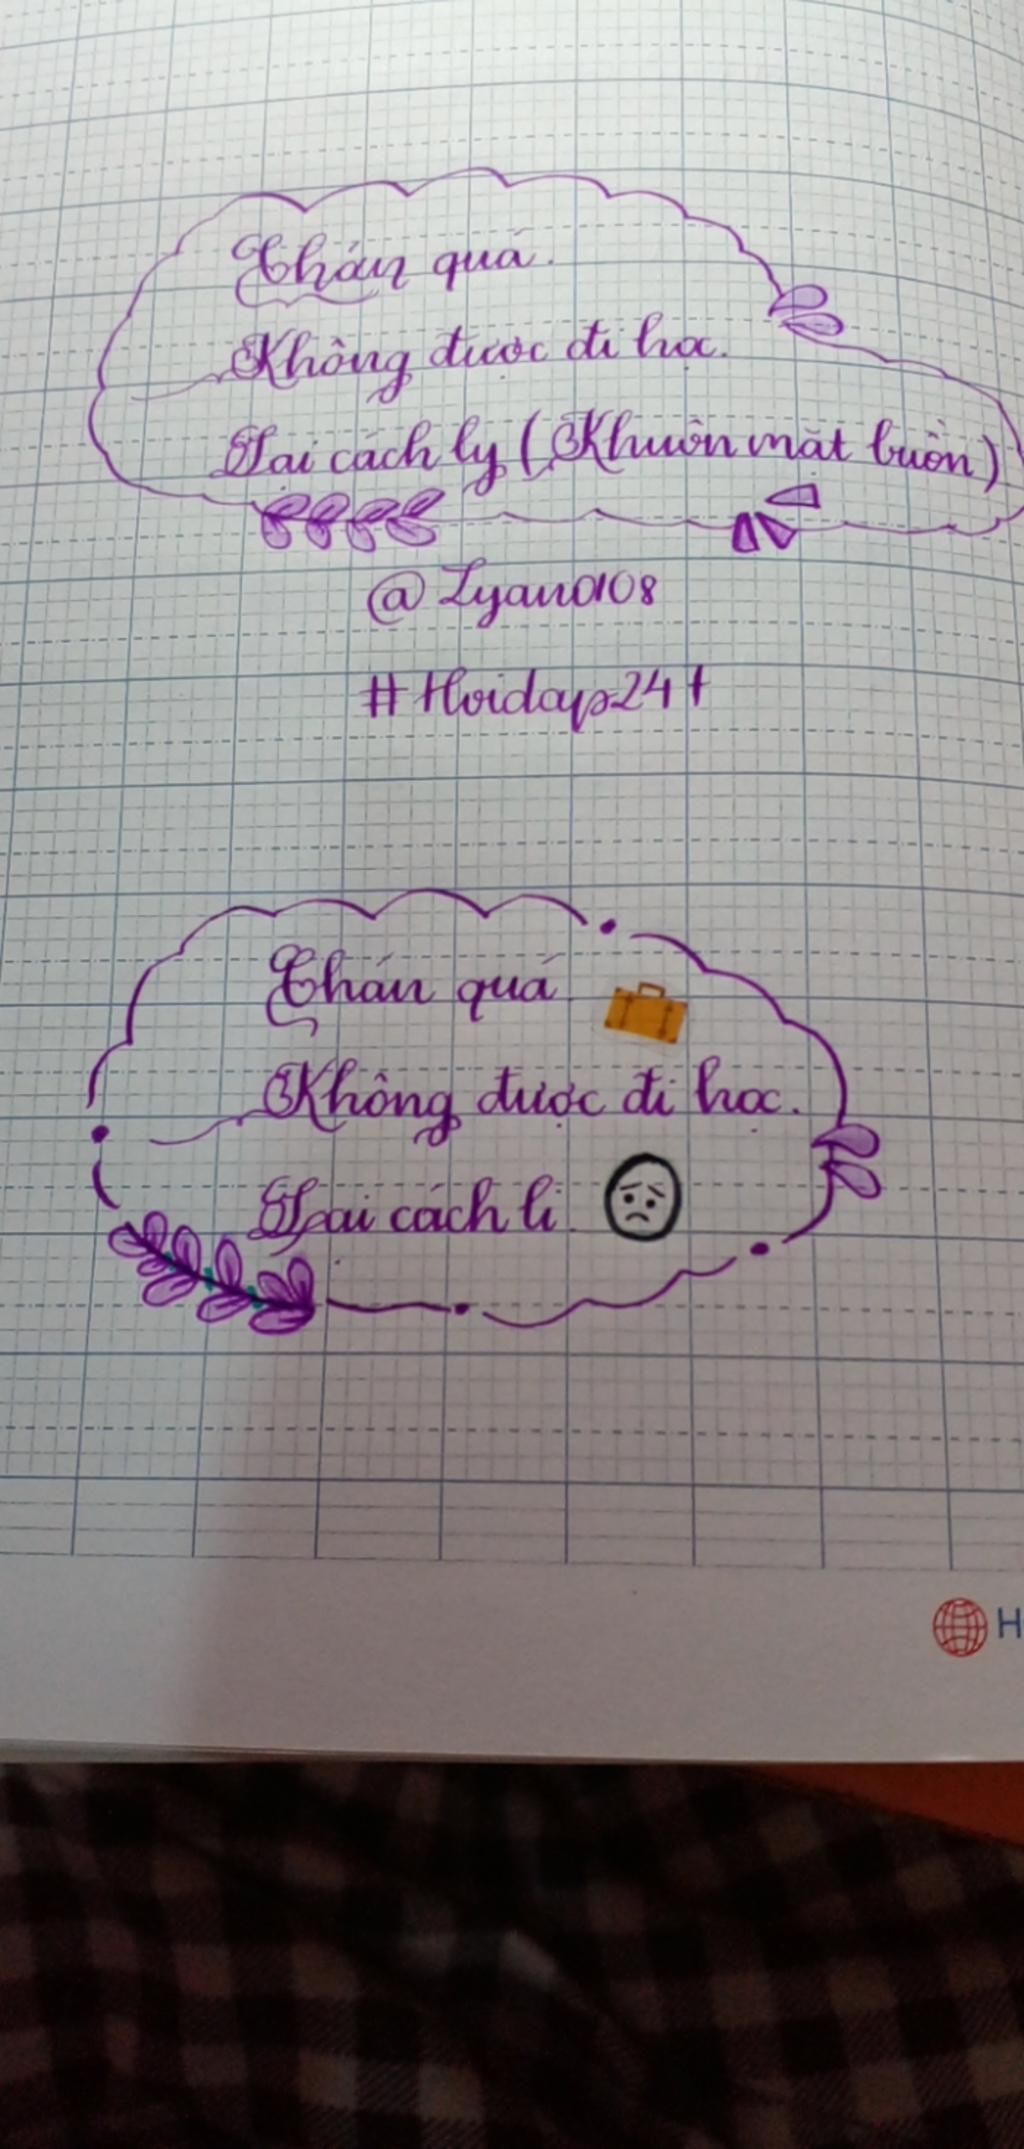 Chán quá.
Không được đi học.
Tại cách ly (Khuôn mặt buồn)
@Lyan0108
#Hoidap24+
Chán quá.
Không được đi học.
Tại cách li.
H